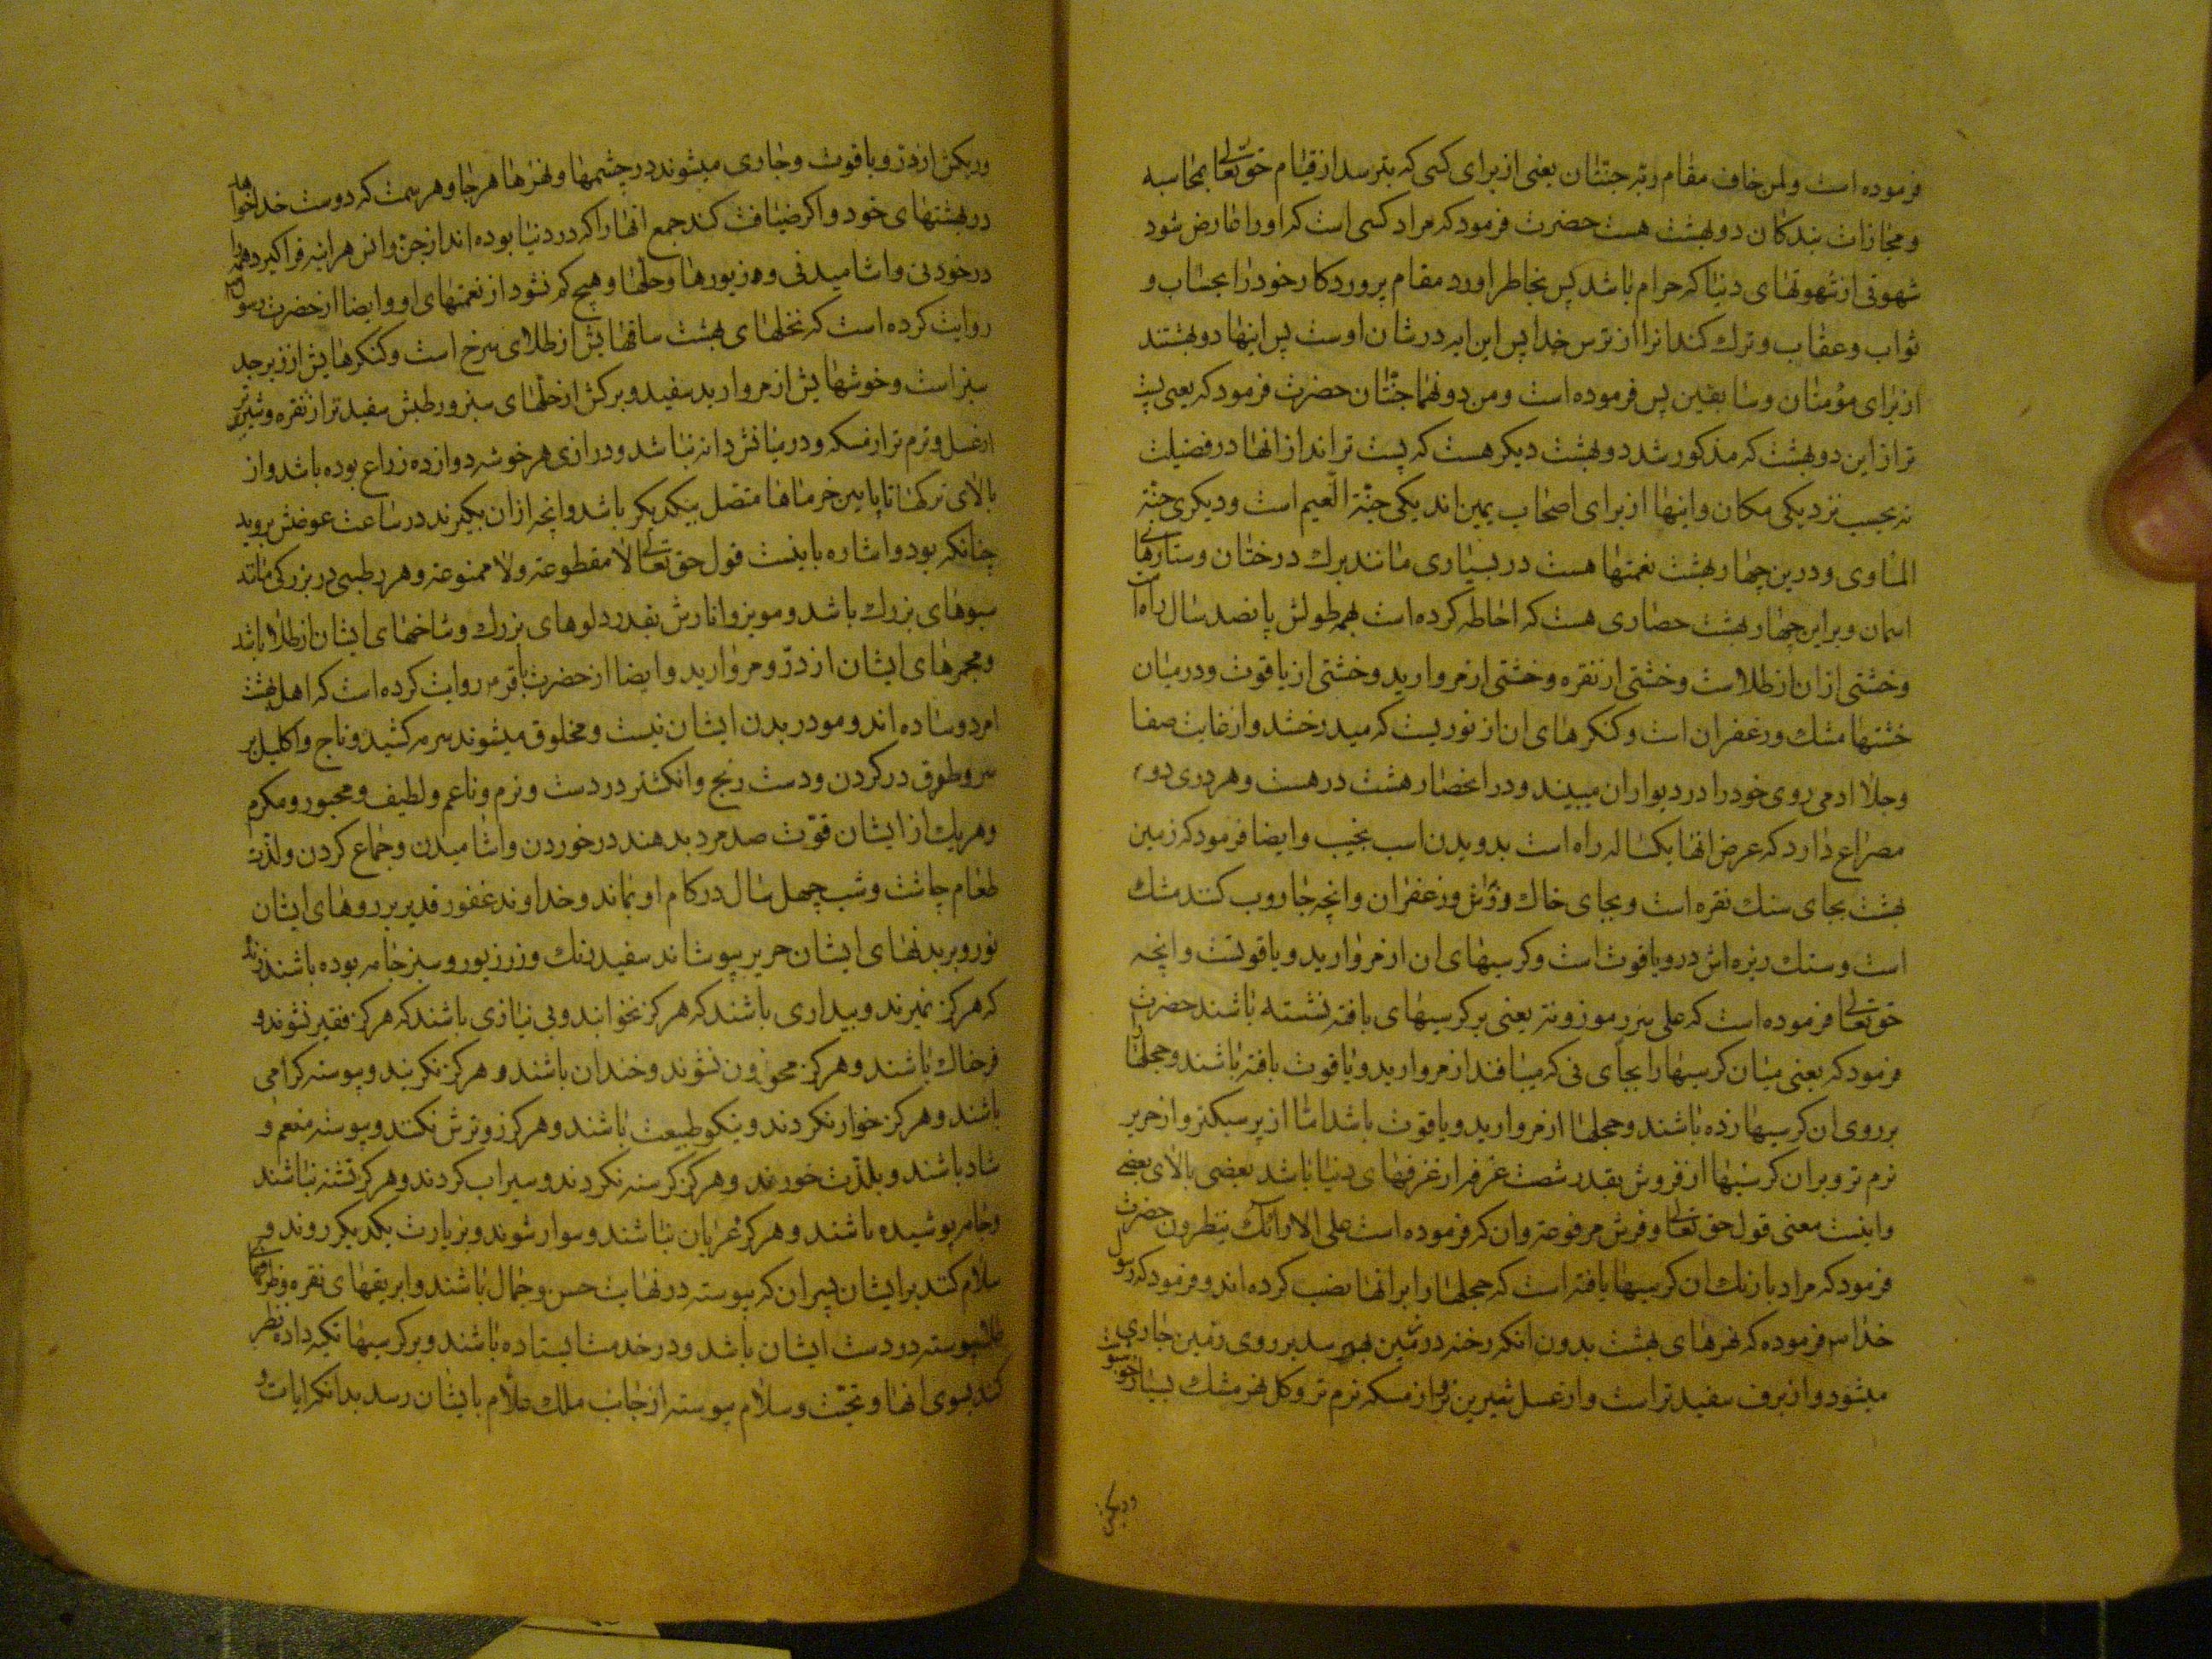 فرموده است ولمن خاف مقام ربّه جنّتان یعنی از برای کسی که بترسد از قیام حق تعالی بمحاسبه
ومجازات بندکان دو بهشت هست حضرت فرمود که مراد کسی است که او را عارض شود
شهوتی از شهوتهای دنیا که حرام باشد پس بخاطر اورد مقام پروردکار خود را بحساب و
ثواب وعقاب وترك کند انرا از ترس خدا پس این ایه در شان اوست پس اینها دو بهشتند
از برای مؤمنان وسابقین پس فرموده است ومن دونهما جنّتان حضرت فرمود که یعنی پست
تر از این دو بهشت که مذکور شد دو بهشت دیکر هست که پست تراند از انها در فضیلت
نه بحسب نزدیکی مکان واینها از برای اصحاب یمین اند یکی جنّة النّعیم است ودیکری جنّة
الماوی ودرین چهار بهشت نعمتها هست در بسیاری مانند برك درختان وستارهای
اسمان وبراین چهار بهشت حصاری هست که احاطه کرده است بهمه طولش پانصد سال راه است
وخشتی از ان از طلاست وخشتی از نقره وخشتی از مروارید وخشتی از یاقوت ودر میان
خشتها مشك وزعفران است وکنکرهای ان از نوریست که میدرخشد واز غایت صفا
وجلا ادمی روی خود را در دیوار ان میبیند ودر ان حصار هشت در هست وهر دری دو
مصراع دارد که عرض انها یکساله راه است بدویدن اسب نجیب وایضا فرمود که زمین
بهشت بجای سنك نقره است وبجای خاك ورس وزعفران وانچه جاروب کنند مشك
است وسنك ریزه اش در ویاقوت است وکرسیهای ان از مروارید ویاقوتست وانچه
حق تعالی فرموده است که علی سرر موزونة یعنی بر کرسیهای بافته نشسته باشند حضرت
فرمود که یعنی میان کرسیها را بجای نی که میبافند از مروارید ویاقوت بافته باشند وحجلها
بر روی ان کرسیها زده باشند وحجلها از مروارید ویاقوت باشد امّا از پر سبکتر واز حریر
نرم تر وبر ان کرسیها از فروش بقدر شصت غرفه از غرفهای دنیا باشد بعضی بالای بعضی
واینست معنی قول حق تعالی وفرش مرفوعة وان که فرموده است علی الارائك ینظرون حضرت
فرمود که مراد بارئك ان کرسیها بافته است که حجلها را بر انها نصب کرده اند وفرمود که رسول
خدا ص فرموده که نهرهای بهشت بدون انکه رخنه در زمین بهم رسد بر روی زمین جاری
میشود واز برف سفید تر است واز عسل شیرین تر واز مسکه نرم تر وکل نهر مشك بسیار خوشبوست
وریکش
وریکش از در ویاقوت وجاری میشوند در چشمها ونهرها هر جا وهر سمت که دوست خدا خواهد
در بهشتهای خود واکر ضیافت کند جمع انها را که در دنیا بوده اند از جن وانس هر اینه فرا کیرد همه را
در خوردنی واشامیدنی وزیورها وحلّها وهیچ کم نشود از نعمتهای او وایضا از حضرت رسول
روایت کرده است که نخلهای بهشت ساقهایش از طلای سرخ است وکنکرهایش از زبرجد
سبز است وخوشهایش از مروارید سفید وبرکش از حلّهای سبز ورطبش سفید تر از نقره وشیرین تر
از عسل ونرم تر از مسکه ودر میانش دانه نباشد ودرازی هر خوشه دوازده زراع بوده باشد واز
بالای ترکها تا پایین خرماها متصل بیکدیکر باشد وانچه از ان بکیرند در ساعت عوضش بروید
چنانکه بود واشاره باینست قول حق تعالی لا مقطوعة ولا ممنوعة وهر رطبی در بزرکی مانند
سبوهای بزرك باشد وموز وانارش بقدر دلوهای بزرك وشاخهای ایشان از طلا باشد
ومجمرهای ایشان از درّ ومروارید وایضا از حضرت باقر روایت کرده است که اهل بهشت
امرد وساده اند ومو در بدن ایشان نیست ومخلوق میشوند سرمه کشیده وتاج واکلیل بر
سر وطوق در کردن ودست رنج وانکشتر در دست ونرم وناعم ولطیف ومحبور ومکرم
وهریك از ایشان قوّت صد مرد بدهند در خوردن واشامیدن وجماع کردن ولذّت
طعام چاشت وشب چهل سال در کام او بماند وخداوند غفور قدیر بر روهای ایشان
نور وبر بدنهای ایشان حریر بپوشاند سفید رنك وزرد زیور وسبز جامه بوده باشند زنده
که هرکز نمیرند وبیداری باشند که هرکز نخوابند وبی نیازی باشند که هرکز فقیر نشوند و
فرحناك باشند وهرکز محزون نشوند وخندان باشند وهرکز نکریند وپیوسته کرامی
باشند وهرکز خوار نکردند ونیکو طبیعت باشند وهرکز رو ترش نکنند وپیوسته منعم و
شاد باشند وبلذّت خورند وهرکز کرسنه نکردند وسیراب کردند وهرکز تشنه نباشند
وجامه پوشیده باشند وهرکز عریان نباشند وسوار شوند وبزیارت یکدیکر روند و
سلام کنند بر ایشان پسران که پیوسته در نهایت حسن وجمال باشند وابریقهای نقره وظرفهای
طلا پیوسته در دست ایشان باشد ودر خدمت ایستاده باشند وبر کرسیها تکیه داده نظر
کنند بسوی انها وتحیّت وسلام پیوسته از جانب ملك علّام بایشان رسد بدانکه ایات و